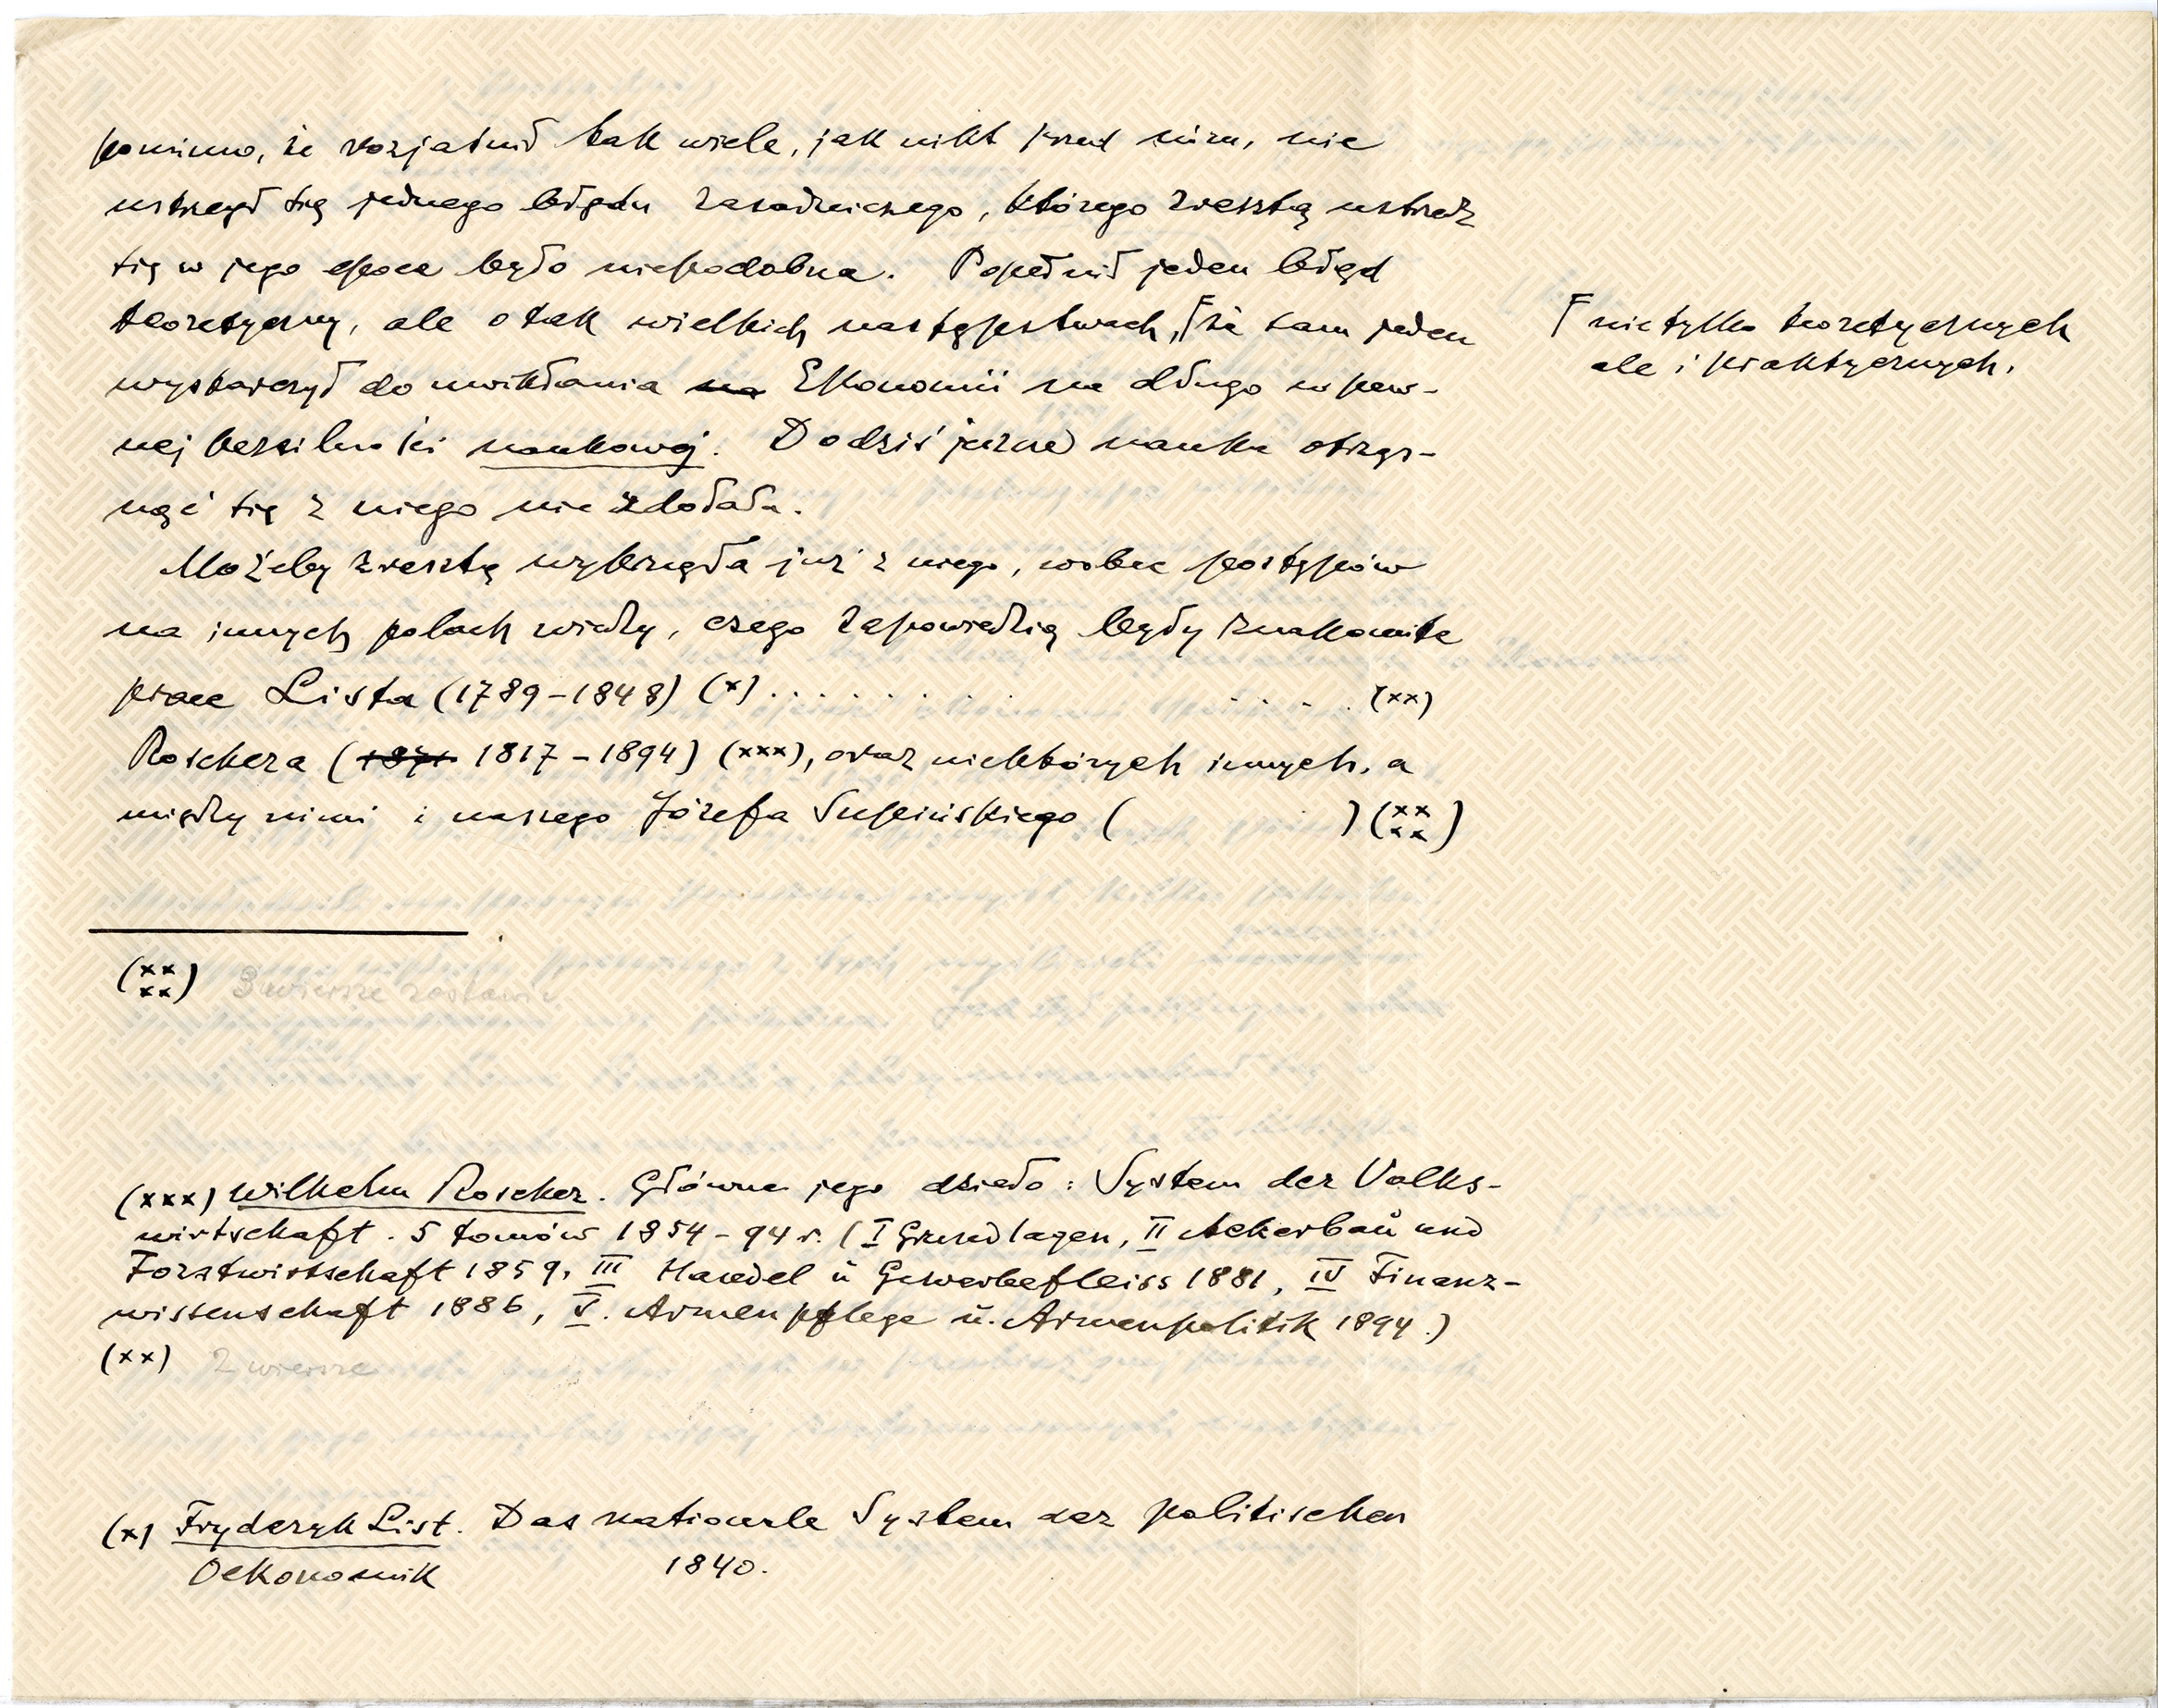 pomimo, że rozjaśnił tak wiele, jak nikt przed nim, nie
ustrzegł się jednego błędu zasadniczego, którego zresztą ustrzedz
się w jego epoce było niepodobna. Popełnił jeden błąd
teoretyczny, ale o tak wielkich następstwach, że sam jeden
nie tylko teoretycznych
ale i praktycznych,
wystarczył do uwikłania na Ekonomii na długo w pew-
nej bezsilności naukowej. Do dziś jeszcze nauka otrzą-
nąć się z niego nie zdołała.
Możeby zresztą wybrnęła już z niego, wobec postępów
na innych polach wiedzy, czego zapowiedzią były znakomite
prace Lista (1789-1848) (x) . . . . . . . . . . . (xx)
Roschera (1871 1817-1894) (xxx), oraz niektórych innych, a
między nimi i naszego Józefa Supińskiego ( ) (xxxx)
(xxxx) 3 wiersze zostawić
(xxx) Wilhelm Roscher. Główne jego dzieło: System der Volks-
wirtschaft. 5 tomów 1854-94 r. (I Grundlagen, II Ackerbau und
Forstwirtschaft 1859, III Handel u Gewerbefleiss 1881, IV Finanz-
wissenschaft 1886, V. Armenpflege u. Armenpolitik 1894.)
(xx) 2 wiersze
(x) Fryderyk List. Das nationale System der politischen
Oekonomik 1840.